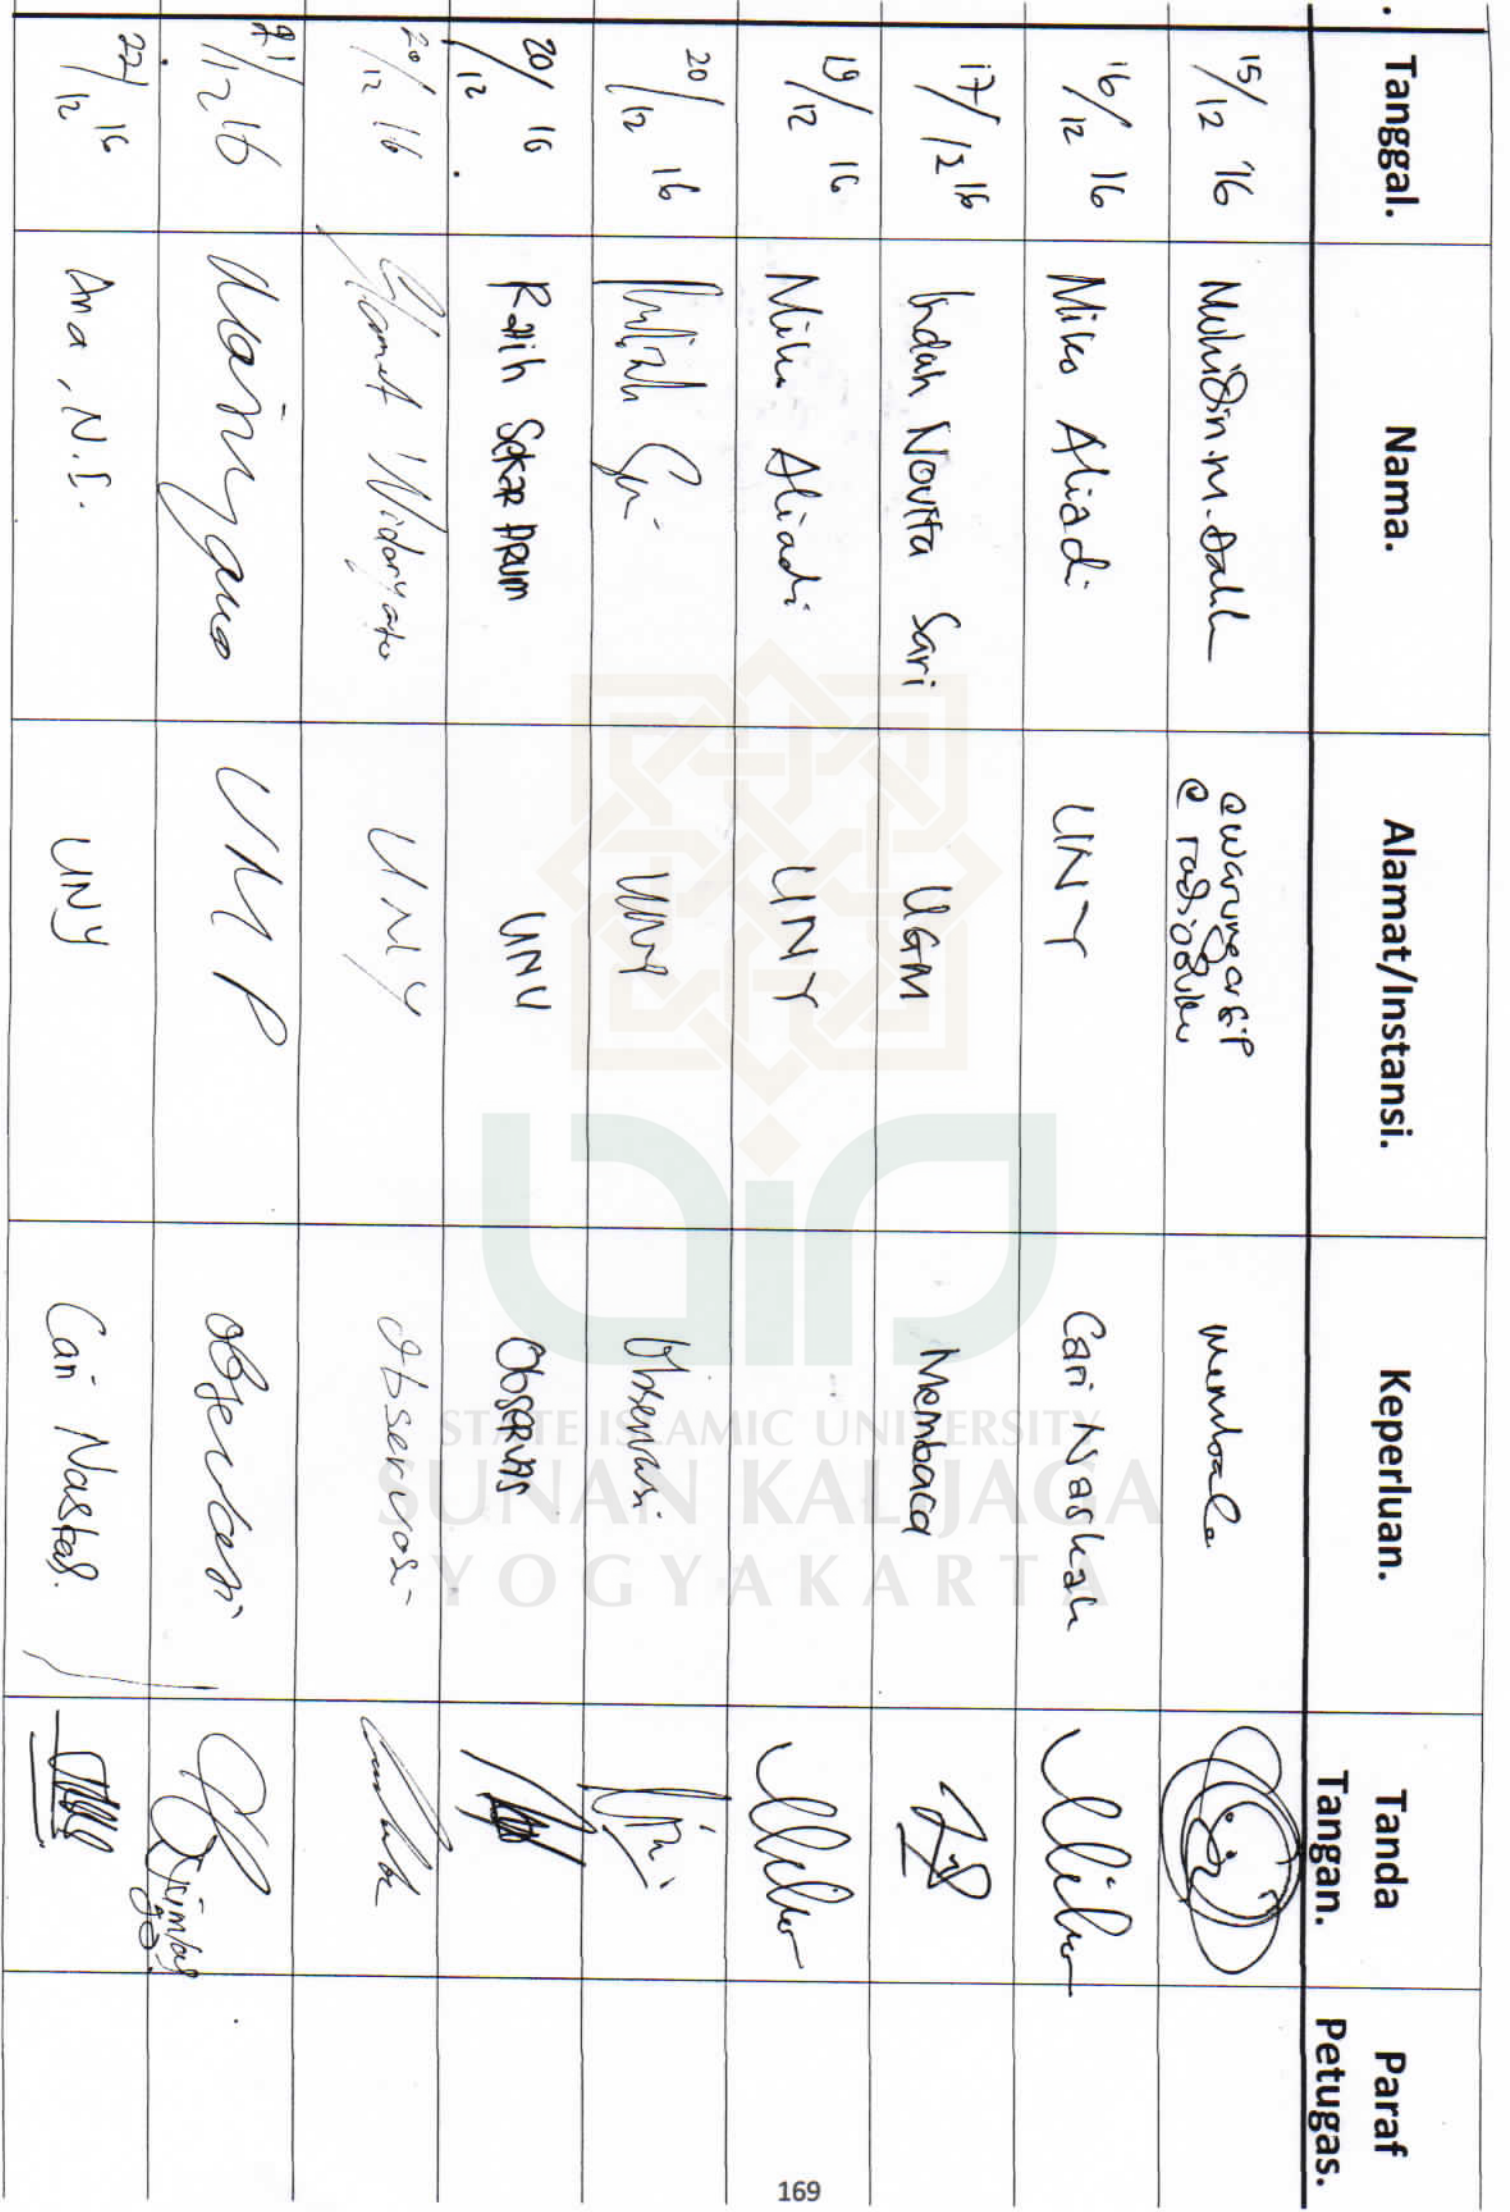 Tanggal. Nama. Alamat/Instansi. Keperluan. Tanda Tangan. Paraf Petugas.
15/12 '16 Muhidin.M.Dahlan @warungarsip @radiobuku membaca
16/12 16 Miko Aliadi UNY Cari Naskah
17/12 16 Indah Novita Sari UGM Membaca
19/12 16 Miko Aliadi UNY
20/12 16 UNY Observasi
20/12 16 Ratih Sekar Arum Observasi
20/12 16 Slamet Widaryanto UNY Observasi
21/12 16 UMP Observasi
22/12 16 Ana, N.I. UNY Cari Naskah.
STATE ISLAMIC UNIVERSITY
SUNAN KALIJAGA
YOGYAKARTA
169